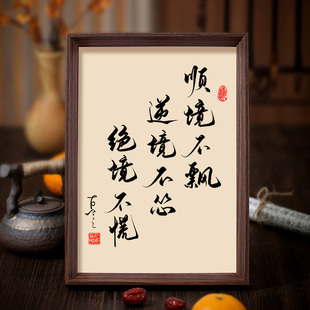 順境不飘
逆境不怂
绝境不慌